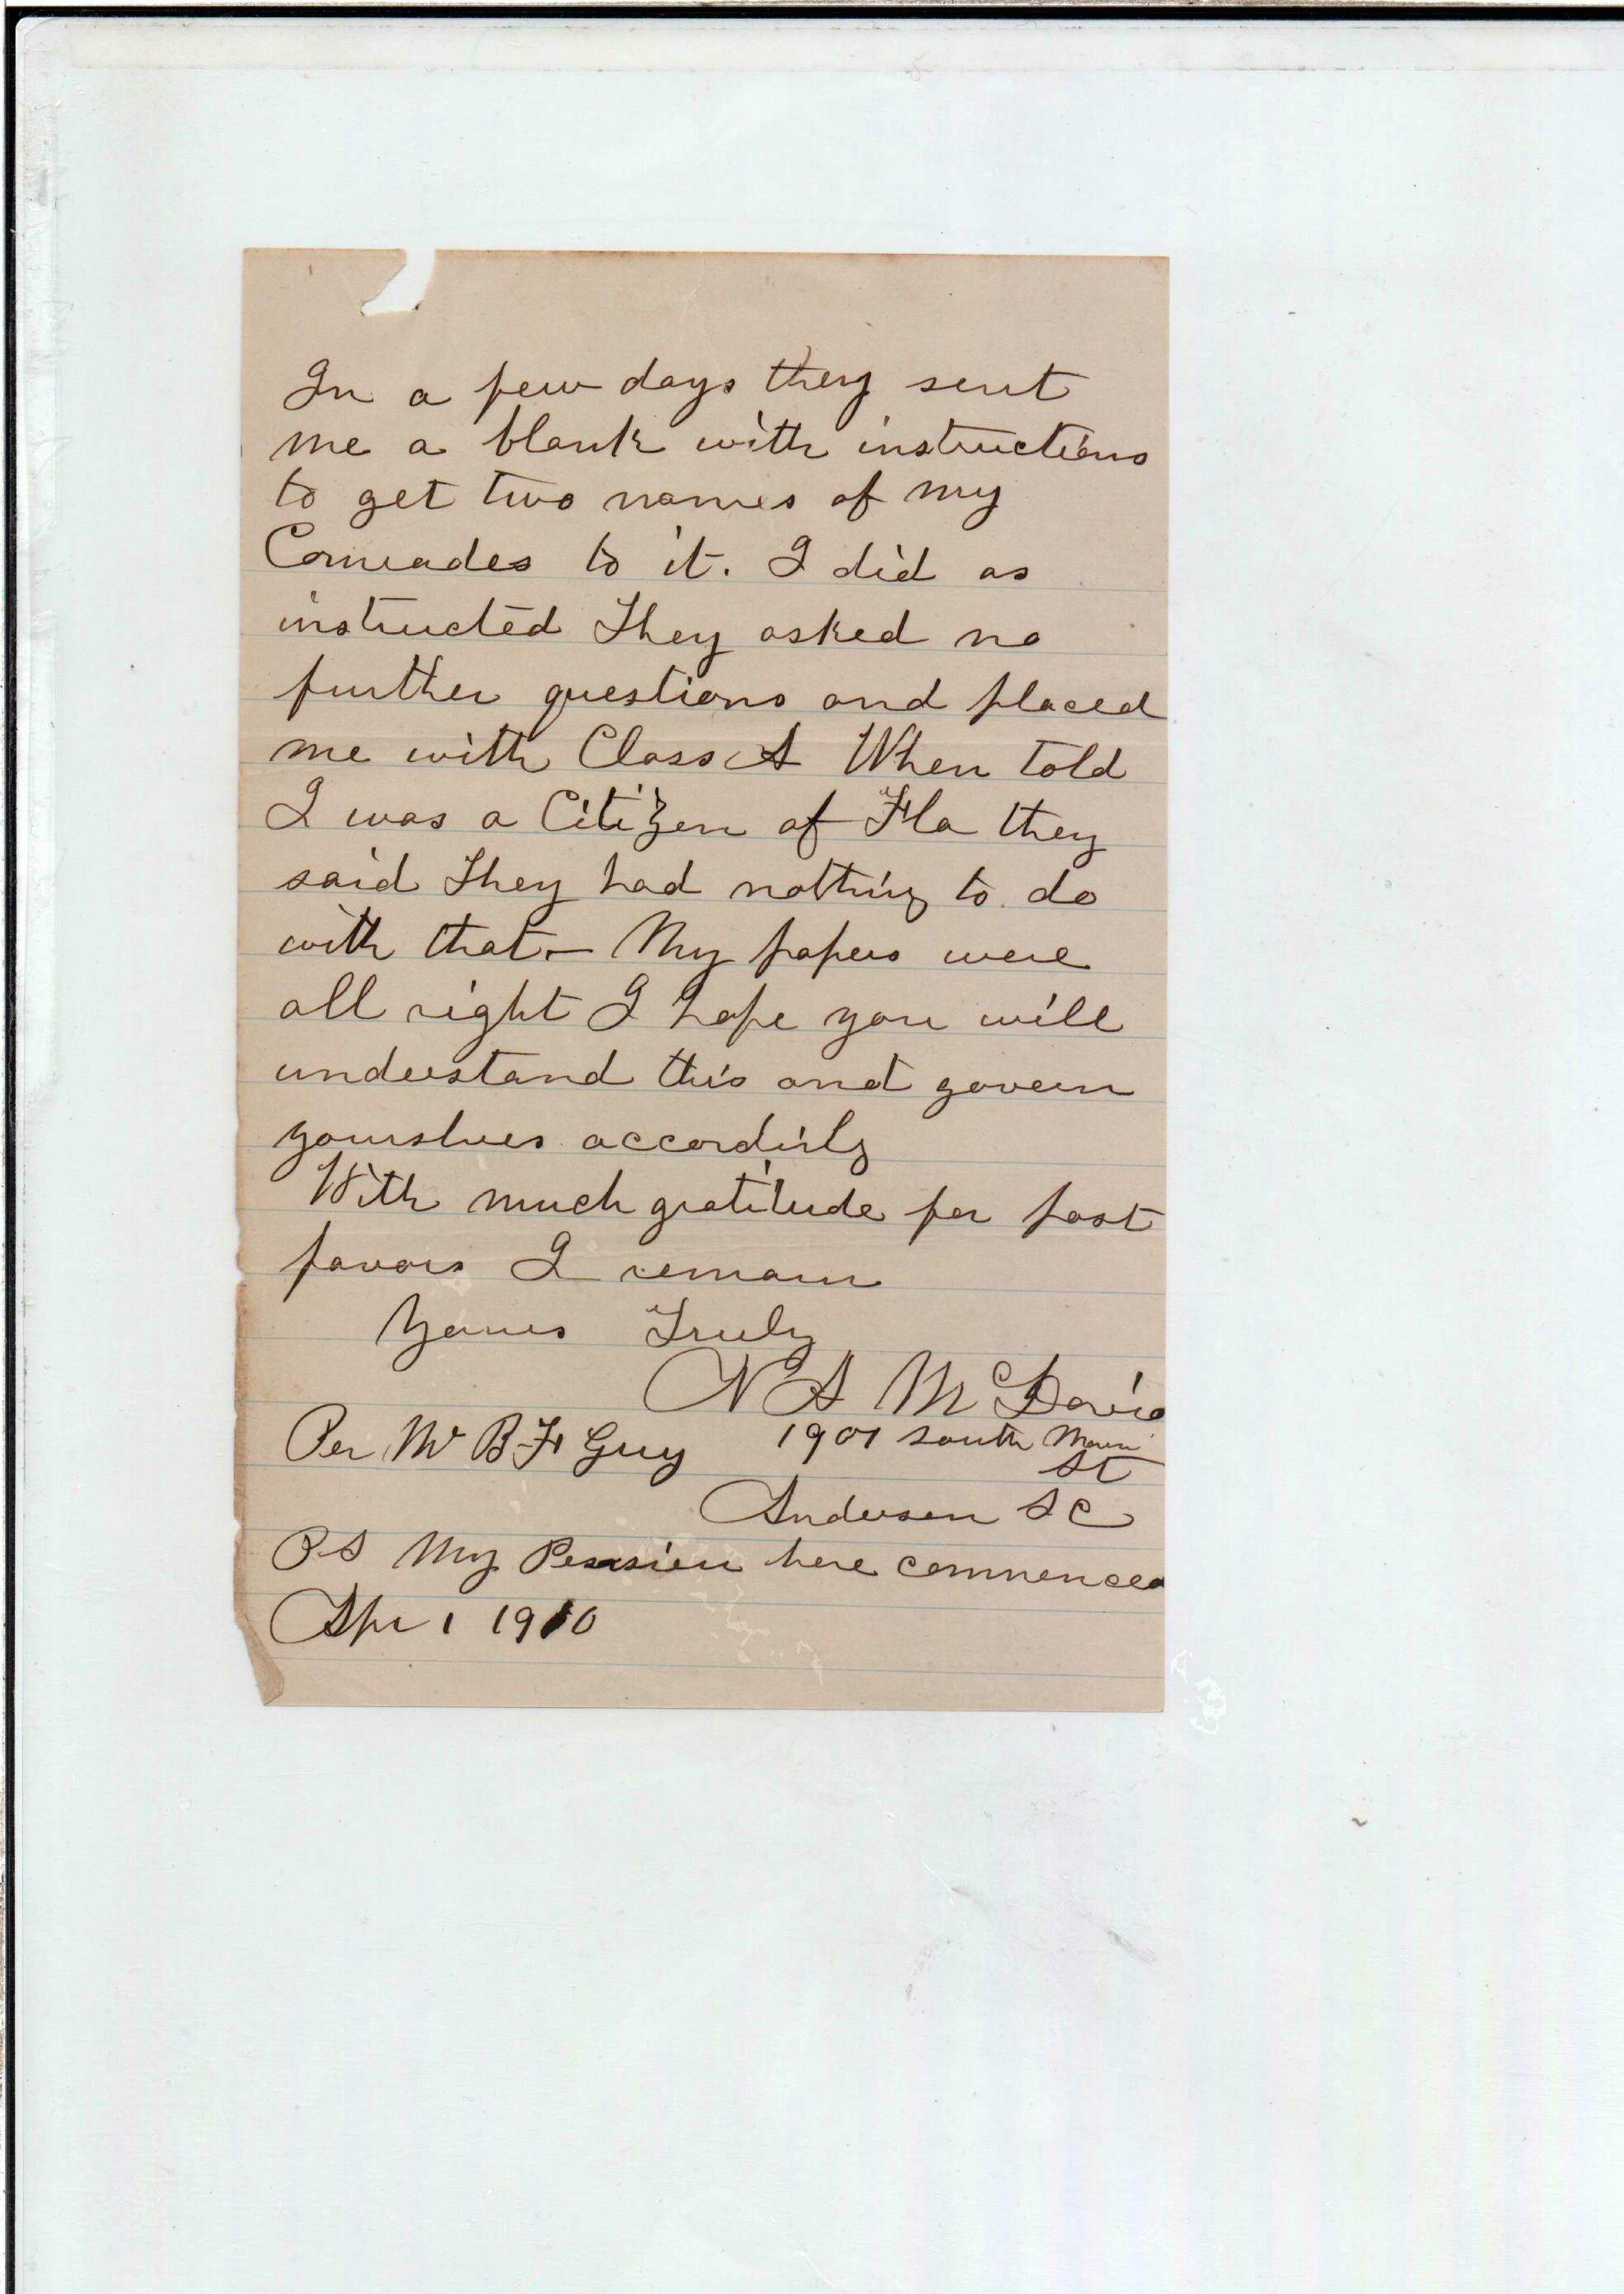 In a few days they sent
me a blank with instructions
to get two names of my
Comrades to it. I did as
instructed They asked no
further questions and placed
me with Class A When told
I was a Citizen of Fla they
said They had nothing to do
with that - My papers were
all right I hope you will
understand this and govern
yourslves accordinly
With much gratitude for past
favors I remain
Yours Truly
N A McDavid
Per Mr B F Guy 1901 South Main
St
Anderson S C
P S My Pension here commenced
Apr 1 1910